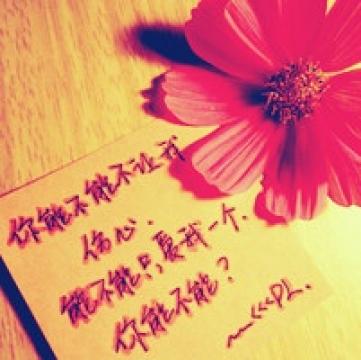 你能不能不让我
伤心.
能不能只要我一个.
你能不能?
~~<<<DL.